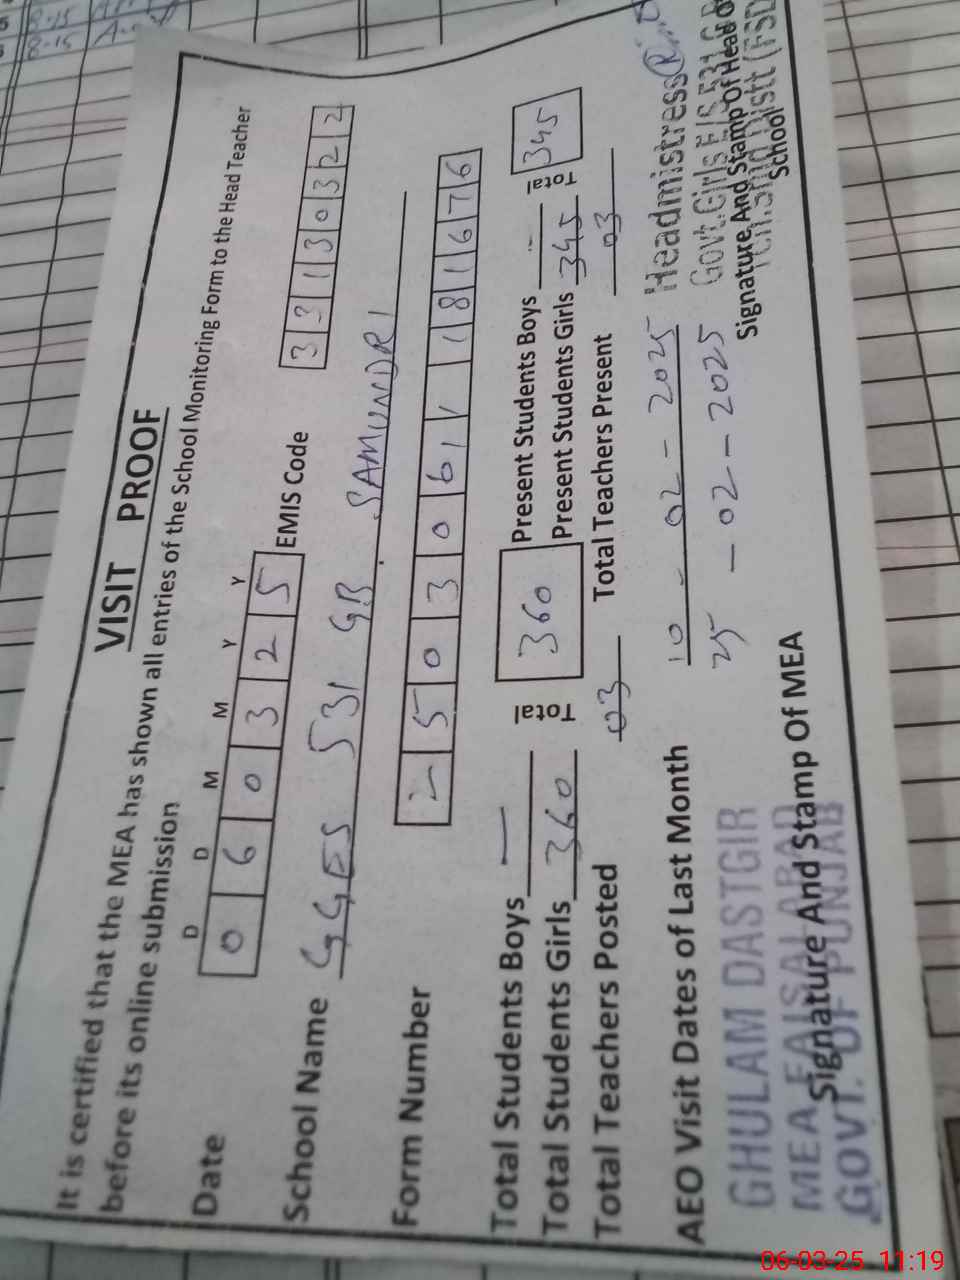 VISIT PROOF
It is certified that the MEA has shown all entries of the School Monitoring Form to the Head Teacher
before its online submission
D D M M Y Y
Date 0 6 0 3 2 5 EMIS Code 3 3 1 3 0 3 2 2
School Name GGES 531 GB. SAMUNDRI
Form Number 2 5 0 3 0 6 1 1 8 1 6 7 6
Total Students Boys — Total 360 Present Students Boys — Total 345
Total Students Girls 360 Present Students Girls 345
Total Teachers Posted 03 Total Teachers Present 03
AEO Visit Dates of Last Month 10 - 02 - 2025
25 - 02 - 2025
Headmistress
Govt. Girls E/S 531 G
Signature And Stamp Of Head Of
School
GHULAM DASTGIR
MEA FAISALABAD
GOVT. OF PUNJAB
Signature And Stamp Of MEA
06-03-25 11:19